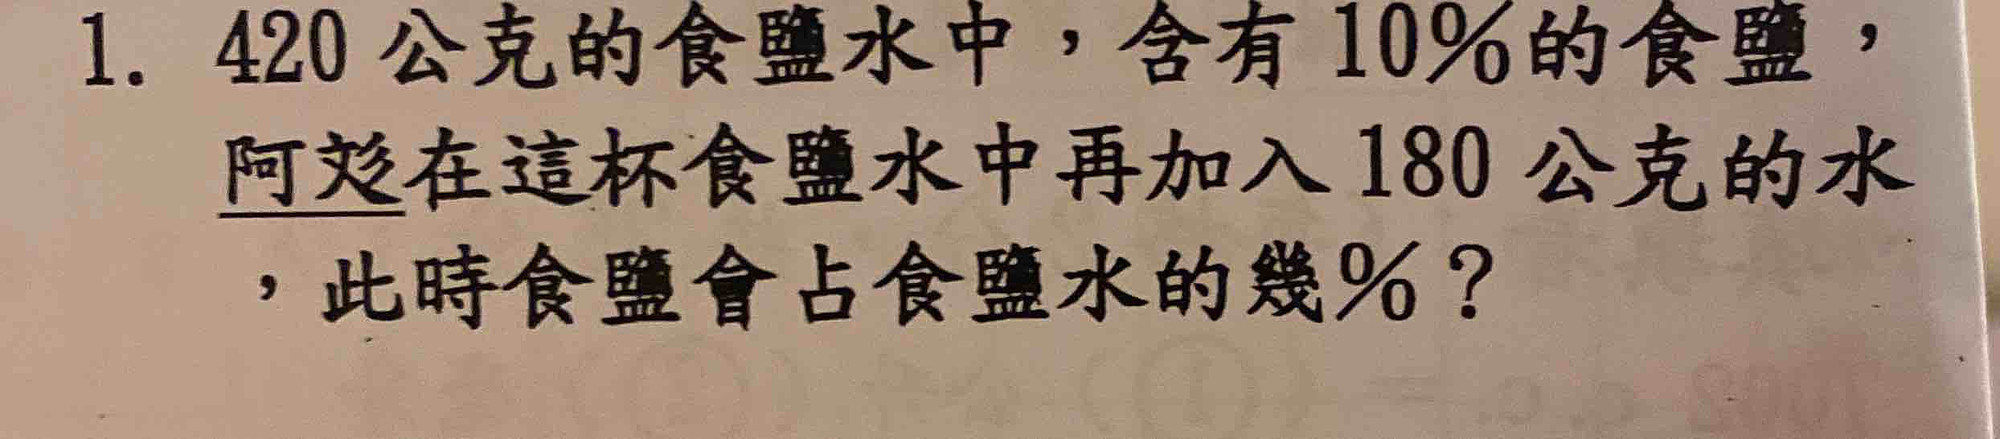 1. 420 公克的食鹽水中，含有 10%的食鹽，
阿彣在這杯食鹽水中再加入 180 公克的水
，此時食鹽會占食鹽水的幾%？